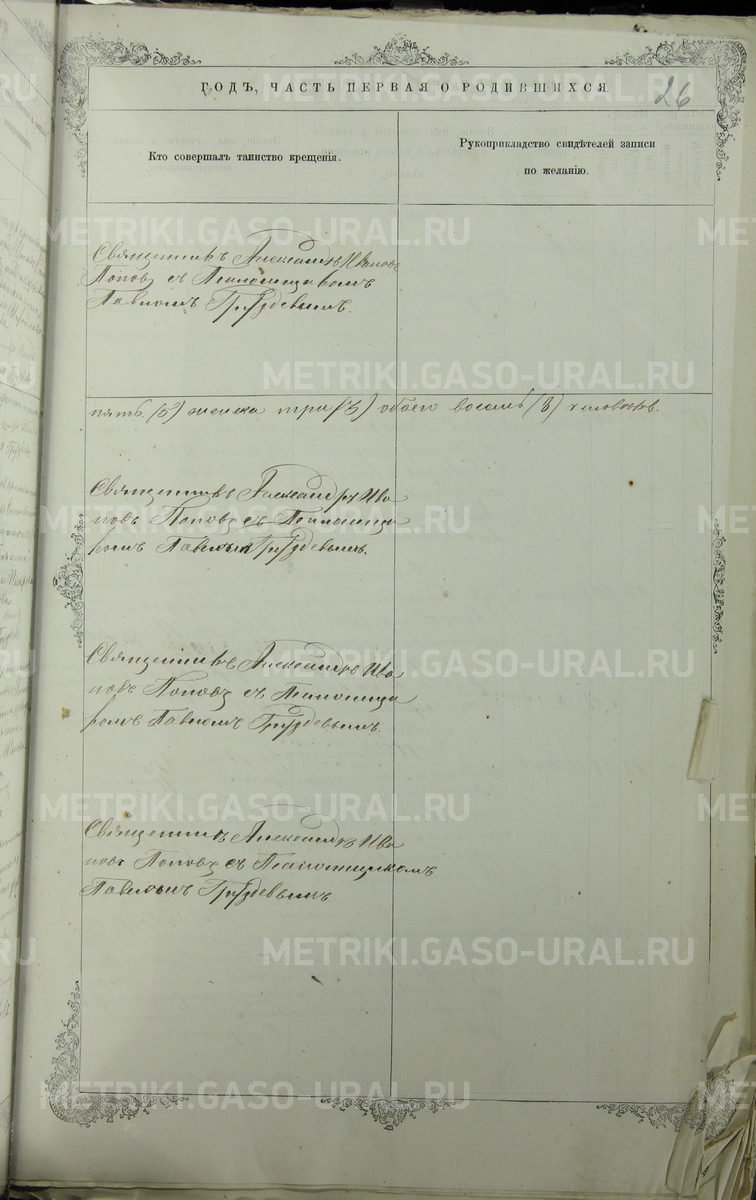 ГОДЪ, ЧАСТЬ ПЕРВАЯ О РОДИВШИХСЯ.
26
Кто совершалъ таинство крещенія.
Рукоприкладство свидѣтелей записи
по желанію.
Священникъ Александръ Ивановъ
Поповъ съ Псаломщикомъ
Павломъ Груздевымъ.
пять (5) женска три (3) обоего восемь (8) человѣкъ.
Священникъ Александръ Ива
новъ Поповъ съ Псаломщи
комъ Павломъ Груздевымъ.
Священникъ Александръ Ива
новъ Поповъ съ Псаломщи
комъ Павломъ Груздевымъ.
Священникъ Александръ Ива
новъ Поповъ съ Псаломщикомъ
Павломъ Груздевымъ.
METRIKI.GASO-URAL.RU